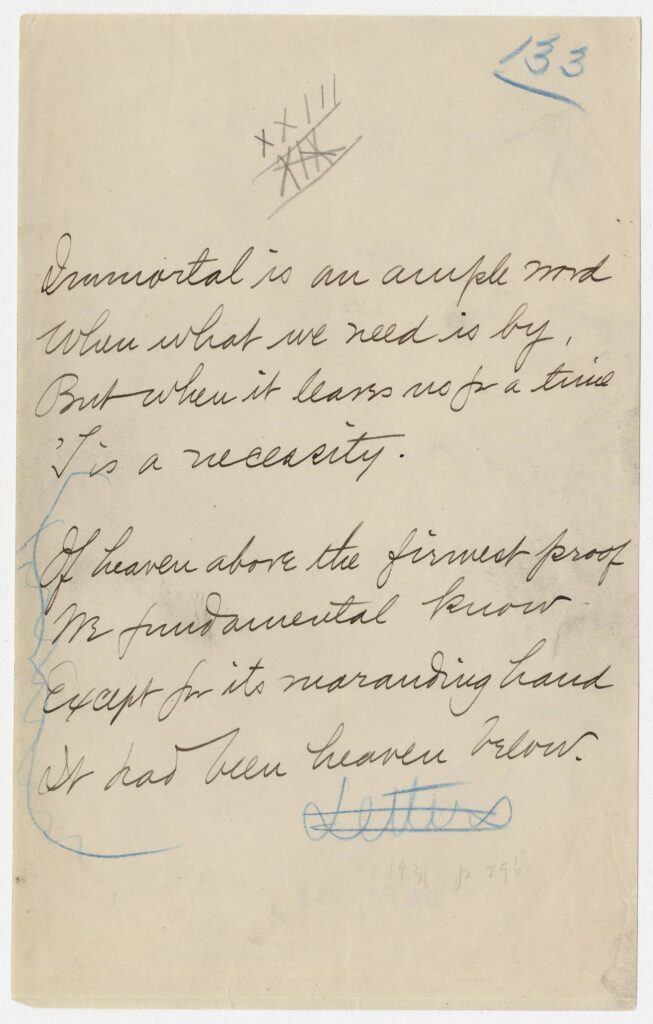 133
XXIII
XIX
Immortal is an ample word
When what we need is by,
But when it leaves us for a time
'T is a necessity.
Of heaven above the firmest proof
We fundamental know
Except for its marauding hand
It had been heaven below.
Letters
1931 p 296